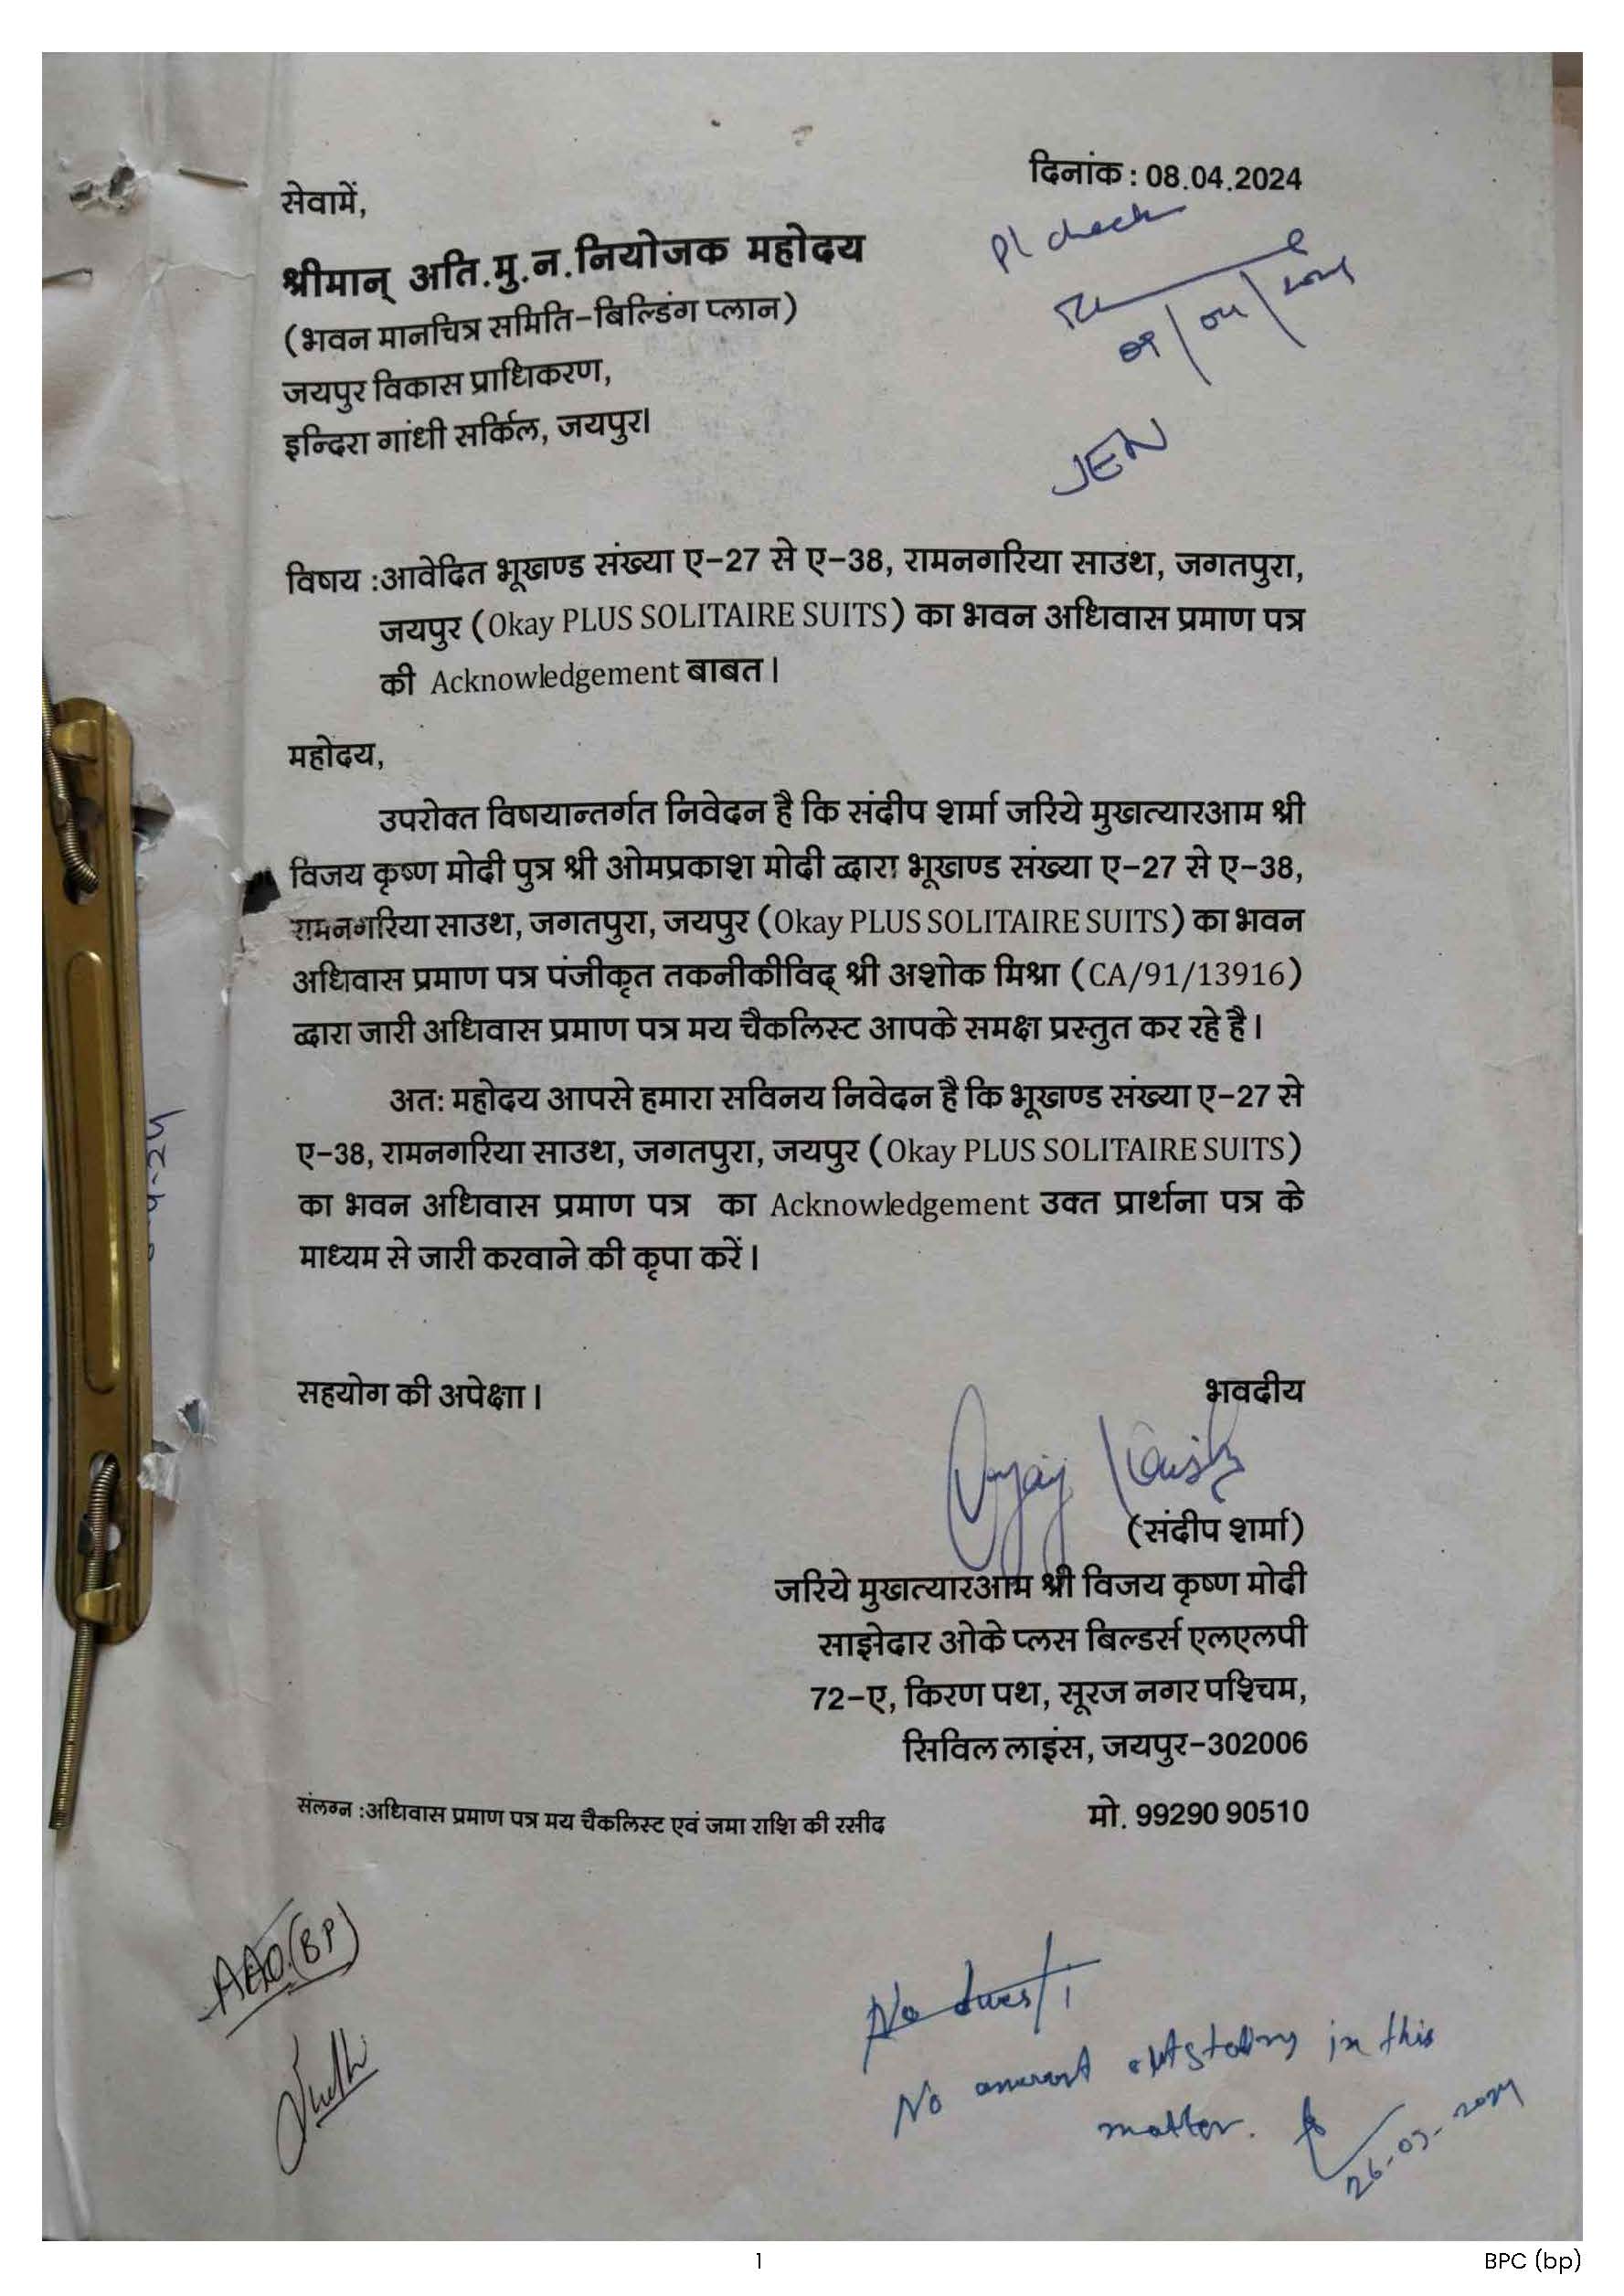 दिनांक : 08.04.2024
सेवामें,
Pl check
श्रीमान् अति.मु.न.नियोजक महोदय
(भवन मानचित्र समिति-बिल्डिंग प्लान)
जयपुर विकास प्राधिकरण,
इन्दिरा गांधी सर्किल, जयपुर।
JEN
विषय :आवेदित भूखण्ड संख्या ए-27 से ए-38, रामनगरिया साउथ, जगतपुरा,
जयपुर (Okay PLUS SOLITAIRE SUITS) का भवन अधिवास प्रमाण पत्र
की Acknowledgement बाबत।
महोदय,
उपरोक्त विषयान्तर्गत निवेदन है कि संदीप शर्मा जरिये मुखत्यारआम श्री
विजय कृष्ण मोदी पुत्र श्री ओमप्रकाश मोदी द्वारा भूखण्ड संख्या ए-27 से ए-38,
रामनगरिया साउथ, जगतपुरा, जयपुर (Okay PLUS SOLITAIRE SUITS) का भवन
अधिवास प्रमाण पत्र पंजीकृत तकनीकीविद् श्री अशोक मिश्रा (CA/91/13916)
द्वारा जारी अधिवास प्रमाण पत्र मय चैकलिस्ट आपके समक्ष प्रस्तुत कर रहे है।
अत: महोदय आपसे हमारा सविनय निवेदन है कि भूखण्ड संख्या ए-27 से
ए-38, रामनगरिया साउथ, जगतपुरा, जयपुर (Okay PLUS SOLITAIRE SUITS)
का भवन अधिवास प्रमाण पत्र का Acknowledgement उक्त प्रार्थना पत्र के
माध्यम से जारी करवाने की कृपा करें।
सहयोग की अपेक्षा।
भवदीय
(संदीप शर्मा)
जरिये मुखत्यारआम श्री विजय कृष्ण मोदी
साझेदार ओके प्लस बिल्डर्स एलएलपी
72-ए, किरण पथ, सूरज नगर पश्चिम,
सिविल लाइंस, जयपुर-302006
संलग्न :अधिवास प्रमाण पत्र मय चैकलिस्ट एवं जमा राशि की रसीद
मो. 99290 90510
AAO(BP)
No dues
No amount outstanding in this
matter.
1
BPC (bp)